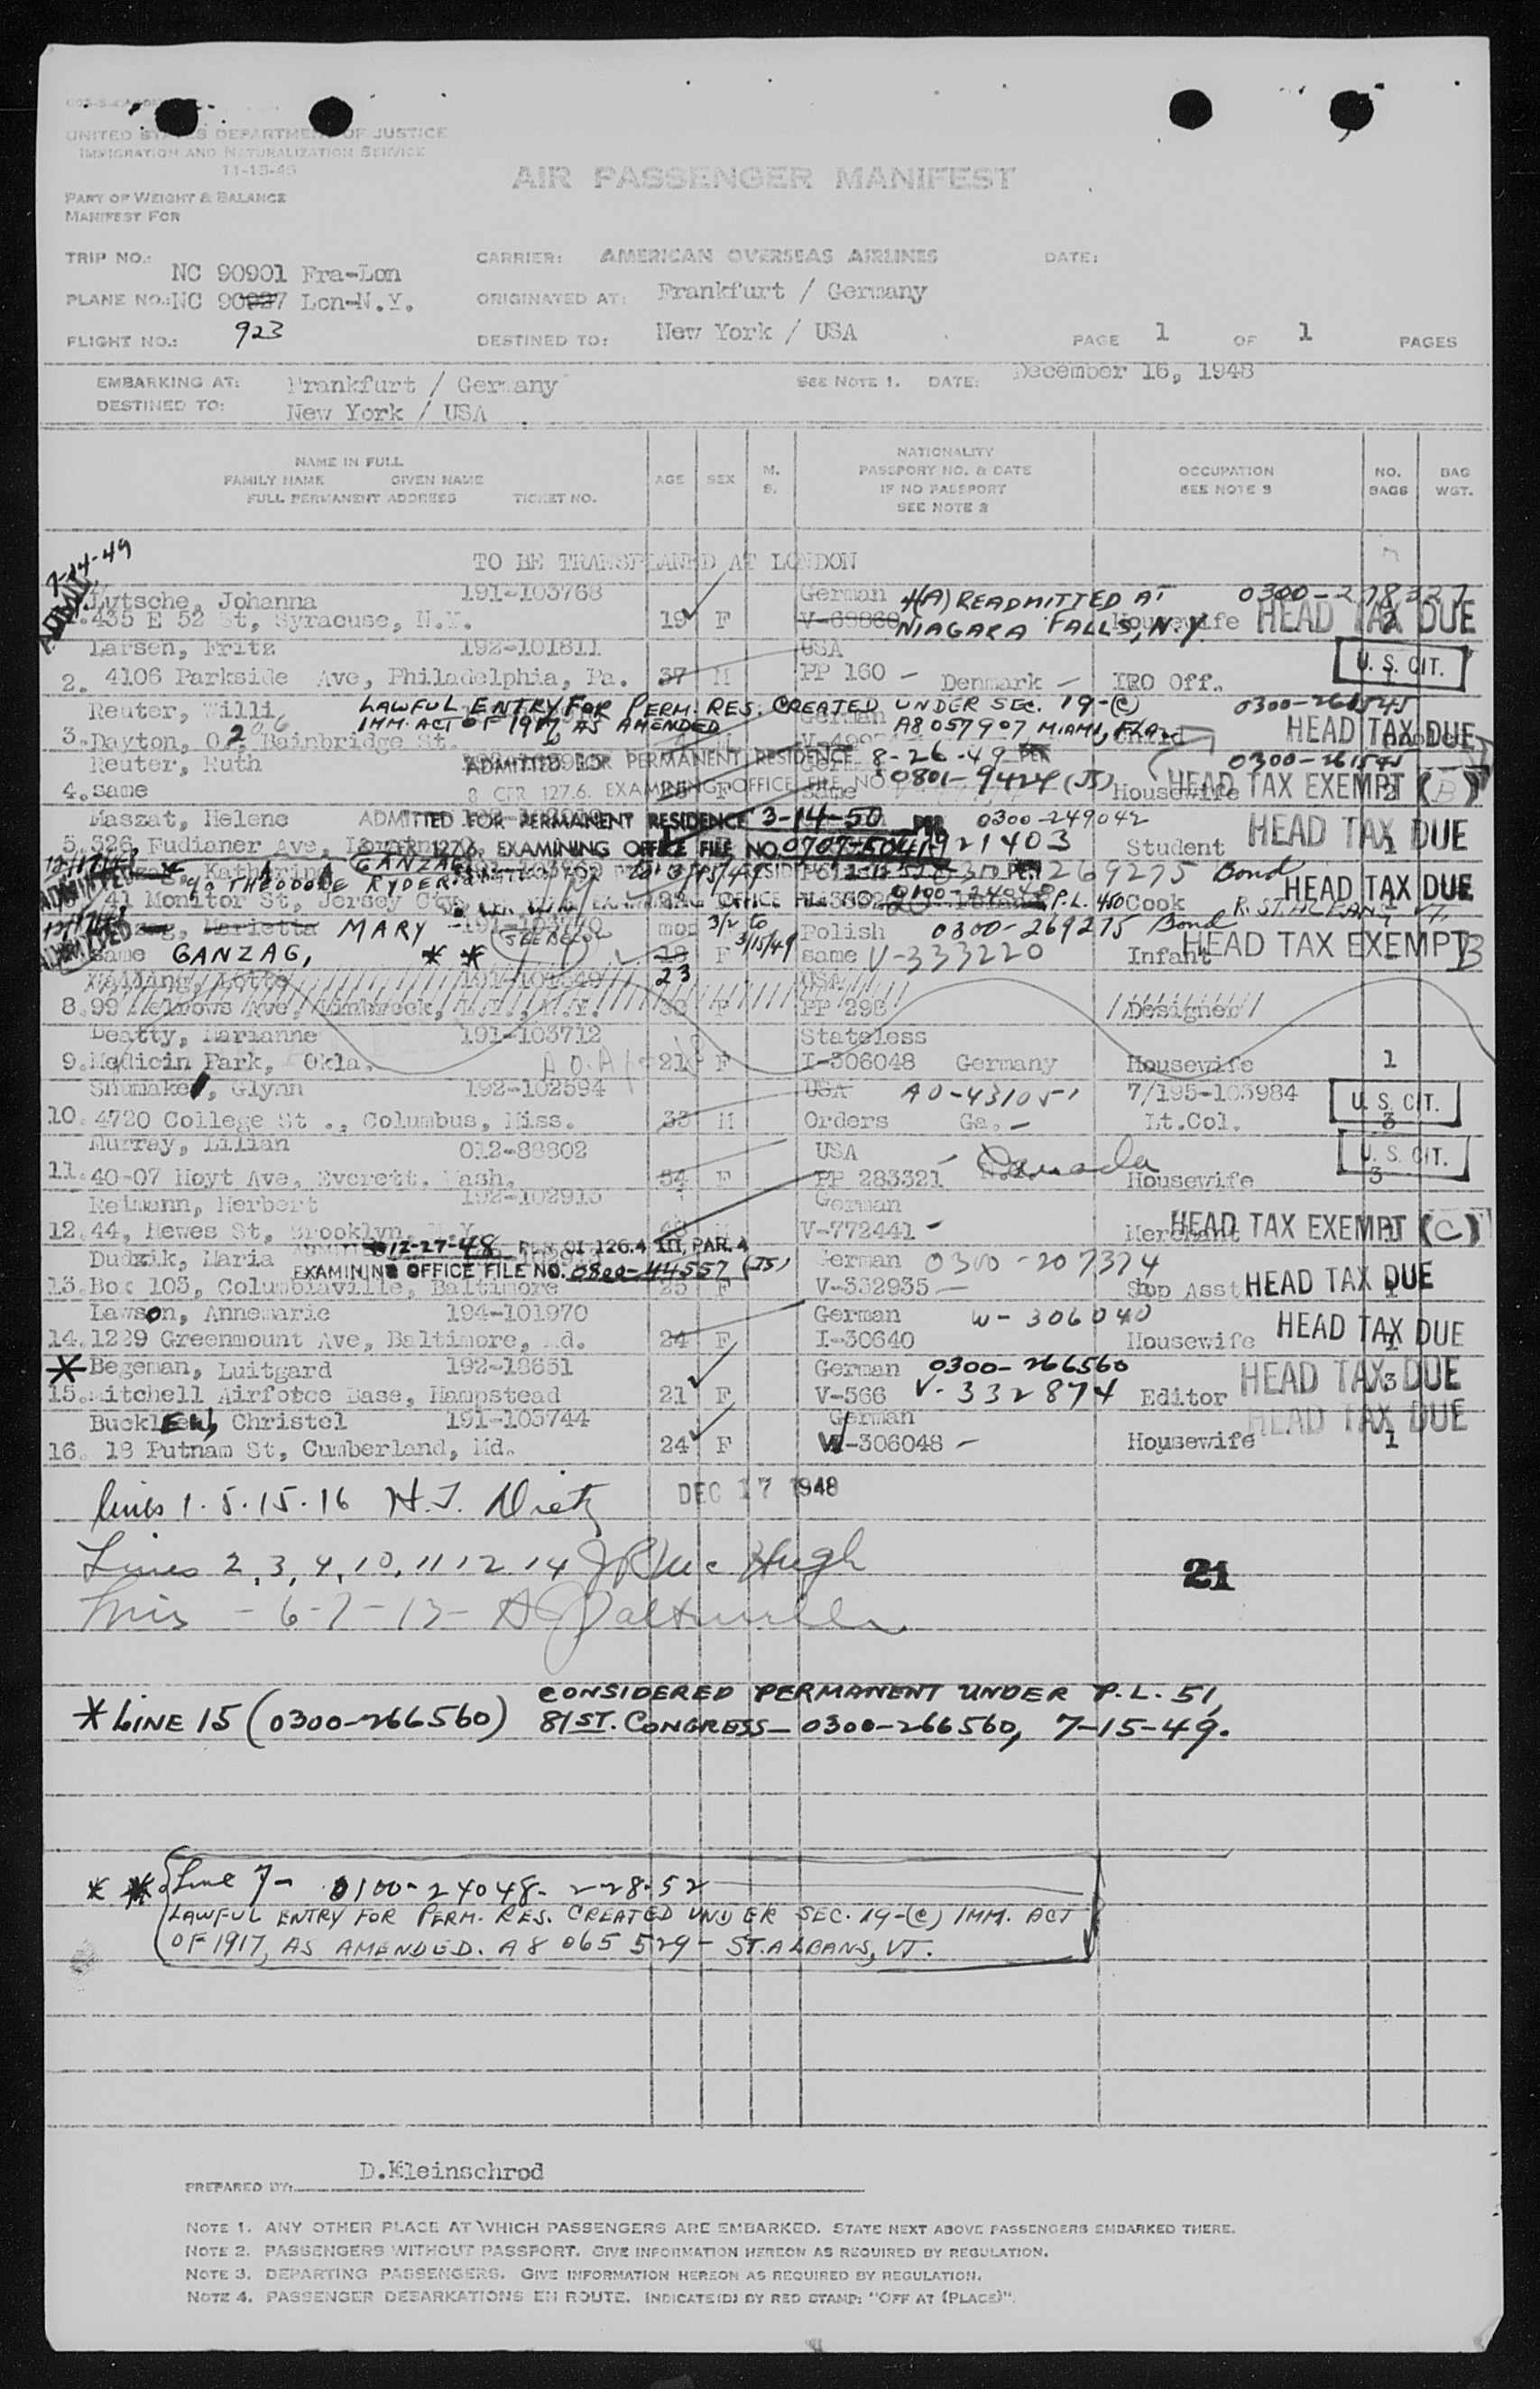 UNITED STATES DEPARTMENT OF JUSTICE
IMMIGRATION AND NATURALIZATION SERVICE
11-15-45
AIR PASSENGER MANIFEST
PART OF WEIGHT & BALANCE
MANIFEST FOR
TRIP NO.: NC 90901 Fra-Lon CARRIER: AMERICAN OVERSEAS AIRLINES DATE:
PLANE NO.: NC Lon-N.Y. ORIGINATED AT: Frankfurt / Germany
FLIGHT NO.: 923 DESTINED TO: New York / USA PAGE 1 OF 1 PAGES
EMBARKING AT: Frankfurt / Germany SEE NOTE 1. DATE: December 16, 1948
DESTINED TO: New York / USA
NAME IN FULL
FAMILY NAME GIVEN NAME
FULL PERMANENT ADDRESS TICKET NO.
AGE SEX M. S.
NATIONALITY
PASSPORT NO. & DATE
IF NO PASSPORT
SEE NOTE 2
OCCUPATION
SEE NOTE 3
NO. BAGS
BAG WGT.
TO BE TRANSPLANED AT LONDON
7-14-49
Lytsche, Johanna 191-103768 German (A) READMITTED AT 0300-278327
435 E 52 St, Syracuse, N.Y. 19 F NIAGARA FALLS, N.Y. Housewife HEAD TAX DUE
Larsen, Fritz 192-101811 USA U.S. CIT.
2. 4106 Parkside Ave, Philadelphia, Pa. 37 M PP 160 - Denmark - IRO Off.
Reuter, Willi LAWFUL ENTRY FOR PERM. RES. CREATED UNDER SEC. 19-(C)
IMM. ACT OF 1917 AS AMENDED A8 057907 MIAMI, FLA.
3. Dayton, O., Bainbridge St. HEAD TAX DUE
Reuter, Ruth ADMITTED FOR PERMANENT RESIDENCE 8-26-49 PER
4. same 8 CFR 127.6. EXAMINING OFFICE FILE NO. 0801-9424 (JS) Housewife HEAD TAX EXEMPT (B)
Maszat, Helene ADMITTED FOR PERMANENT RESIDENCE 3-14-50 PER 0300-249042
5. 326 Fudianer Ave, EXAMINING OFFICE FILE NO. Student HEAD TAX DUE
Katharina GANZAG 269275 Bond
c/o THEODORE RYDER
41 Monitor St, Jersey City P.L. 450 Cook HEAD TAX DUE
Marietta MARY mos 3/2 to 3/15/49 Polish 0300-269275 Bond
same GANZAG, * * (SEE BELOW) 18 F same V-333220 Infant HEAD TAX EXEMPT B
23
8. 99 Ave, Lynbrook, L.I., N.Y. 38 F PP 298 Designer
Beatty, Marianne 191-103712 Stateless
9. Medicin Park, Okla. 21 F I-306048 Germany Housewife 1
Shumake, Glynn 192-102594 USA AO-431051 7/195-103984 U.S. CIT.
10. 4720 College St ., Columbus, Miss. 33 M Orders Ga. - Lt.Col. 3
Murray, Lilian 012-88802 USA Canada U.S. CIT.
11. 40-07 Hoyt Ave, Everett. Wash. 34 F PP 283321 Housewife 3
Reimann, Herbert 192-102913 German
12. 44, Hewes St, Brooklyn, N.Y. V-772441 - Merchant HEAD TAX EXEMPT (C)
Dudzik, Maria 12-27-48 PER OI 126.4 III, PAR. 4 German 0300-207374
EXAMINING OFFICE FILE NO. 0800-44557 (JS)
13. Box 103, Columbiaville, Baltimore 25 F V-332935 - Sop Asst HEAD TAX DUE
Lawson, Annemarie 194-101970 German W-306040
14. 1229 Greenmount Ave, Baltimore, Md. 24 F I-30640 Housewife HEAD TAX DUE
* Begeman, Luitgard 192-18651 German 0300-266560
15. Mitchell Airforce Base, Hampstead 21 F V-566 V-332874 Editor 3 HEAD TAX DUE
Bucklew, Christel 191-103744 German HEAD TAX DUE
16. 18 Putnam St, Cumberland, Md. 24 F -306048 - Housewife 1
lines 1.5.15.16 H.J. Dietz DEC 17 1948
Lines 2, 3, 4, 10, 11 12 14 J R Mc Hugh 21
- 6-7-13-
* LINE 15 (0300-266560) CONSIDERED PERMANENT UNDER P.L. 51,
81ST. CONGRESS - 0300-266560, 7-15-49.
* * Line 7- 0100-24048- 2-28-52
LAWFUL ENTRY FOR PERM. RES. CREATED UNDER SEC. 19-(C) IMM. ACT
OF 1917, AS AMENDED. A8 065 529 - ST. ALBANS, VT.
PREPARED BY: D.Kleinschrod
NOTE 1. ANY OTHER PLACE AT WHICH PASSENGERS ARE EMBARKED. STATE NEXT ABOVE PASSENGERS EMBARKED THERE.
NOTE 2. PASSENGERS WITHOUT PASSPORT. GIVE INFORMATION HEREON AS REQUIRED BY REGULATION.
NOTE 3. DEPARTING PASSENGERS. GIVE INFORMATION HEREON AS REQUIRED BY REGULATION.
NOTE 4. PASSENGER DEBARKATIONS EN ROUTE. INDICATE(D) BY RED STAMP: "OFF AT (PLACE)".